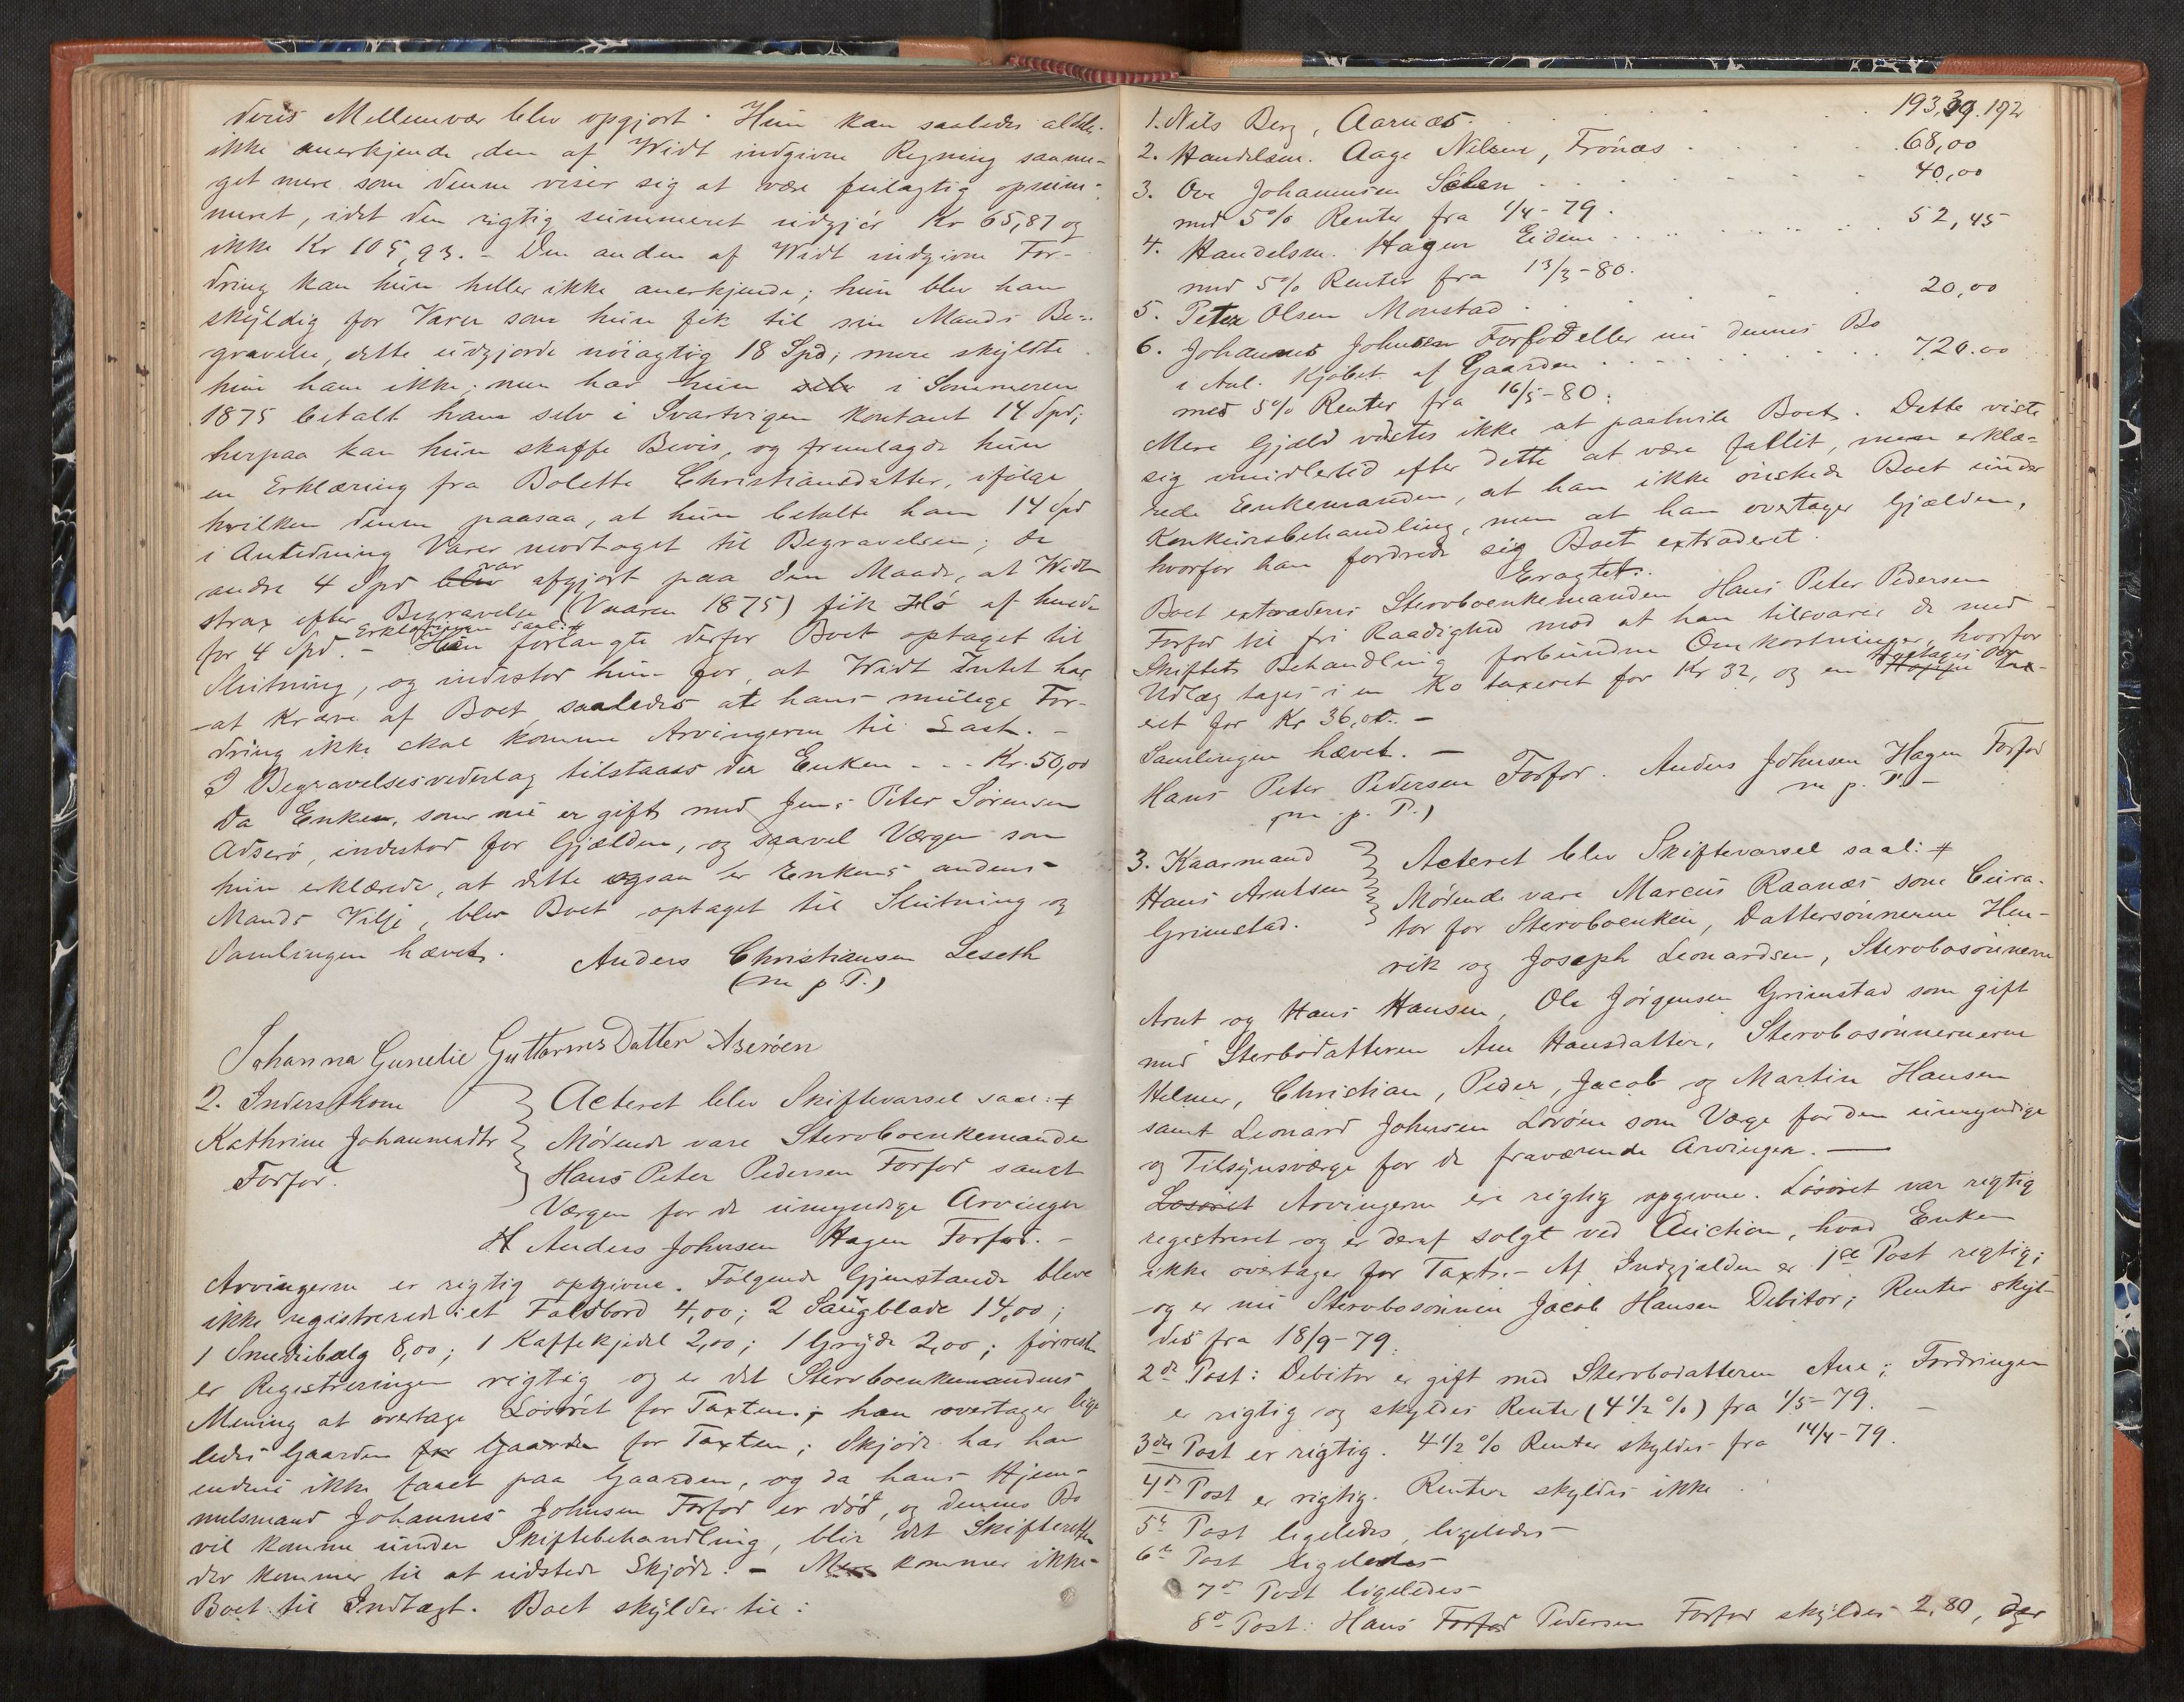 deres Mellemvær blev opgjort. Hun kan saaledes aldeles
ikke anerkjende den af Widt indgivne Regning saame-
get mere som denne viser sig at være feilagtig opsum-
meret, idet den rigtig summeret udgjør Kr 65,87 og
ikke Kr 105,93. - Den anden af Widt indgivne For-
dring kan hun heller ikke anerkjende; hun blev ham
skyldig for Varer som hun fik til sin Mands Be-
gravelse, dette udgjorde nøiagtig 18 Spd; mere skyldte
hun ham ikke; men har hun selv i Sommeren
1875 betalt ham selv i Svartvigen kontant 14 Spd;
herpaa kan hun skaffe Bevis, og fremlagde hun
en Erklæring fra Bolette Christiansdatter, ifølge
hvilken denne paasaa, at hun betalte ham 14 Spd
i Anledning Varer modtaget til Begravelsen; de
andre 4 Spd blev var afgjort paa den Maade, at Widt
strax efter Begravelsen (Vaaren 1875) fik Hø af hende
for 4 Spd. - Erklæringen saal: # Hun forlangte derfor Boet optaget til
Slutning, og indestod hun for, at Widt Intet har
at kræve af Boet, saaledes at hans mulige For-
dring ikke skal komme Arvingerne til Last. -
I Begravelsesvederlag tilstaaes der Enken - - Kr. 50,00
Da Enken, som nu er gift med Jens Peter Sørensen
Adserø, indestod for Gjælden, og saavel Værgen som
hun erklærede, at dette ogsaa er Enkens andens
Mands Vilje, blev Boet optaget til Slutning og
Samlingen hævet. Anders Christiansen Leseth
(m p P.)
Johanna Gurelie GuttormsDatter Aserøen
2. Indersthone
Kathrine Johannesdtr
Forfod.
Acteret blev Skiftevarsel saal: #
Mødende vare Stervboenkemanden
Hans Peter Pedersen Forfod samt
Værgen for de umyndige Arvinger
H Anders Johnsen Hagen Forfod. -
Arvingerne er rigtig opgivne. Følgende Gjenstande bleve
ikke registreret: et Foldbord 4,00; 2 Saugblade 14,00;
1 Smediebælg 8,00; 1 Kaffekjedel 2,00; 1 Gryde 2,00; forresten
er Registreringen rigtig og er det Stervboenkemandens
Mening at overtage Løsøret for Taxten; han overtager lige
ledes Gaarden for Gaarden for Taxten; Skjøde har han
endnu ikke faaet paa Gaarden, og da hans Hjem-
melsmand Johannes Johnsen Forfod er død, og dennes Bo
vil komme under Skiftebehandling, blir det Skifteretten
der kommer til at udstede Skjøde. - Mere kommer ikke
Boet til Indtægt. Boet skylder til:
193,39. 192
1. Nils Berg, Aarnæs
2. Handelsm. Aage Nilsen, Frønæs . . . 68,00
3. Ove Johannesen Sølen . . . 40,00
med 5% Renter fra 1/4-79.
4. Handelsm. Hagen Eidem . . . 52,45
med 5% Renter fra 13/3-80.
5. Peter Olsen Monstad . . . 20,00
6. Johannes Johnsen Forfod eller nu dennes Bo
i Anl. Kjøbet af Gaarden . . . 720.00
med 5% Renter fra 16/5-80.
Mere Gjæld vidstes ikke at paahvile Boet. Dette viste
sig imidlertid efter dette at være fallit, men erklæ-
rede Enkemanden, at han ikke ønskede Boet under
Konkursbehandling, men at han overtager Gjælden,
hvorfor han fordrede sig Boet extraderet.
Eragtet.
Boet extraderes Stervboenkemanden Hans Peter Pedersen
Forfod til fri Raadighed mod at han tilsvarer de med
Skiftets Behandling forbundne Omkostninger, hvorfor
Udlæg tages i en Ko taxeret for Kr 32, og en Hoppe tax-
eret for Kr 36,00. -
Samlingen hævet. -
Hans Peter Pedersen Forfod. Anders Johnsen Hagen Forfod
(m. p. P.) m p. P. -
3. Kaarmand
Hans Arntsen
Grimstad.
Acteret blev Skiftevarsel saal: #
Mødende vare Marcus Raanæs som Cura-
tor for Stervboenken, Dattersønnerne Hen-
rik og Joseph Leonardsen, Stervbosønnerne
Arnt og Hans Hansen, Ole Jørgensen Grimstad som gift
med Sterbodatteren Ane Hansdatter, Stervbosønnernerne
Helmer, Christian, Peder, Jacob og Martin Hansen
samt Leonard Johnsen Lorøen som Værge for den umyndige
og Tilsynsværge for de fraværende Arvinger. -
Løsøret Arvingerne er rigtig opgivne. Løsøret var rigtig
registreret og er deraf solgt ved Auction, hvad Enken
ikke overtager for Taxt. - Af Indgjælden er 1ste Post rigtig;
og er nu Stervbosønnen Jacob Hansen Debitor; Renter skyl-
des fra 18/9-79.
2de Post: Debitor er gift med Stervbodatteren Ane; Fordringen
er rigtig og skyldes Renter (4 1/2 %) fra 1/5-79. -
3die Post er rigtig. 4 1/2 % Renter skyldes fra 14/4-79.
4de Post er rigtig. Renter skyldes ikke
5te Post ligeledes, ligeledes
6te Post ligeledes
7de Post ligeledes
8de Post: Hans Forfod Pedersen Forfod skyldes 2,80, der